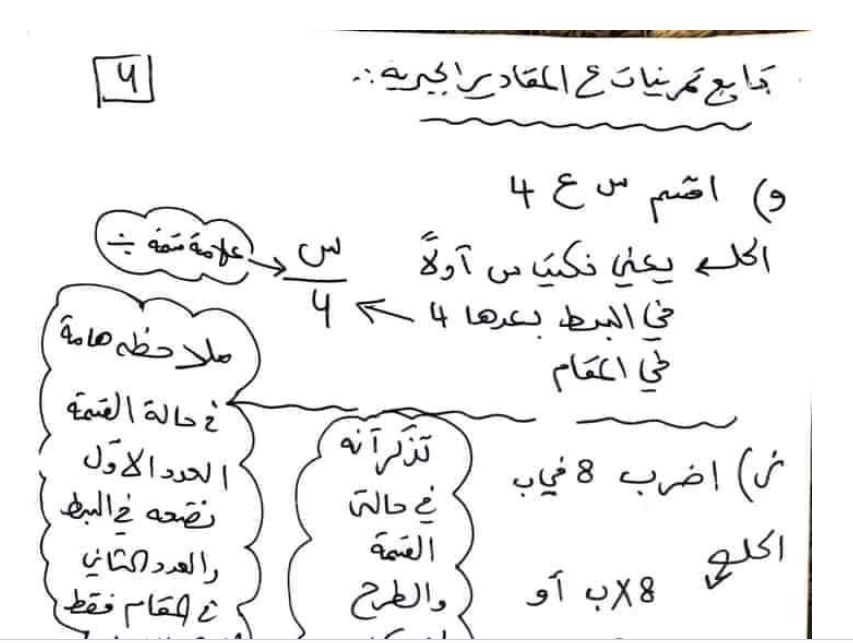 4
تابع تمرينات ع المقادير الجبرية :.
و) اقسم س ع 4
الحل ← يعني نكتب س أولاً
في البسط بعدها 4
في المقام
س
4
علامة قسمة ÷
ملاحظه هامة
في حالة القسمة
العدد الأول
نضعه في البسط
والعدد الثاني
في المقام فقط
تذكر آنه
في حالتي
القسمة
والطرح
ز) اضرب 8 في ب
الحل
8×ب أو